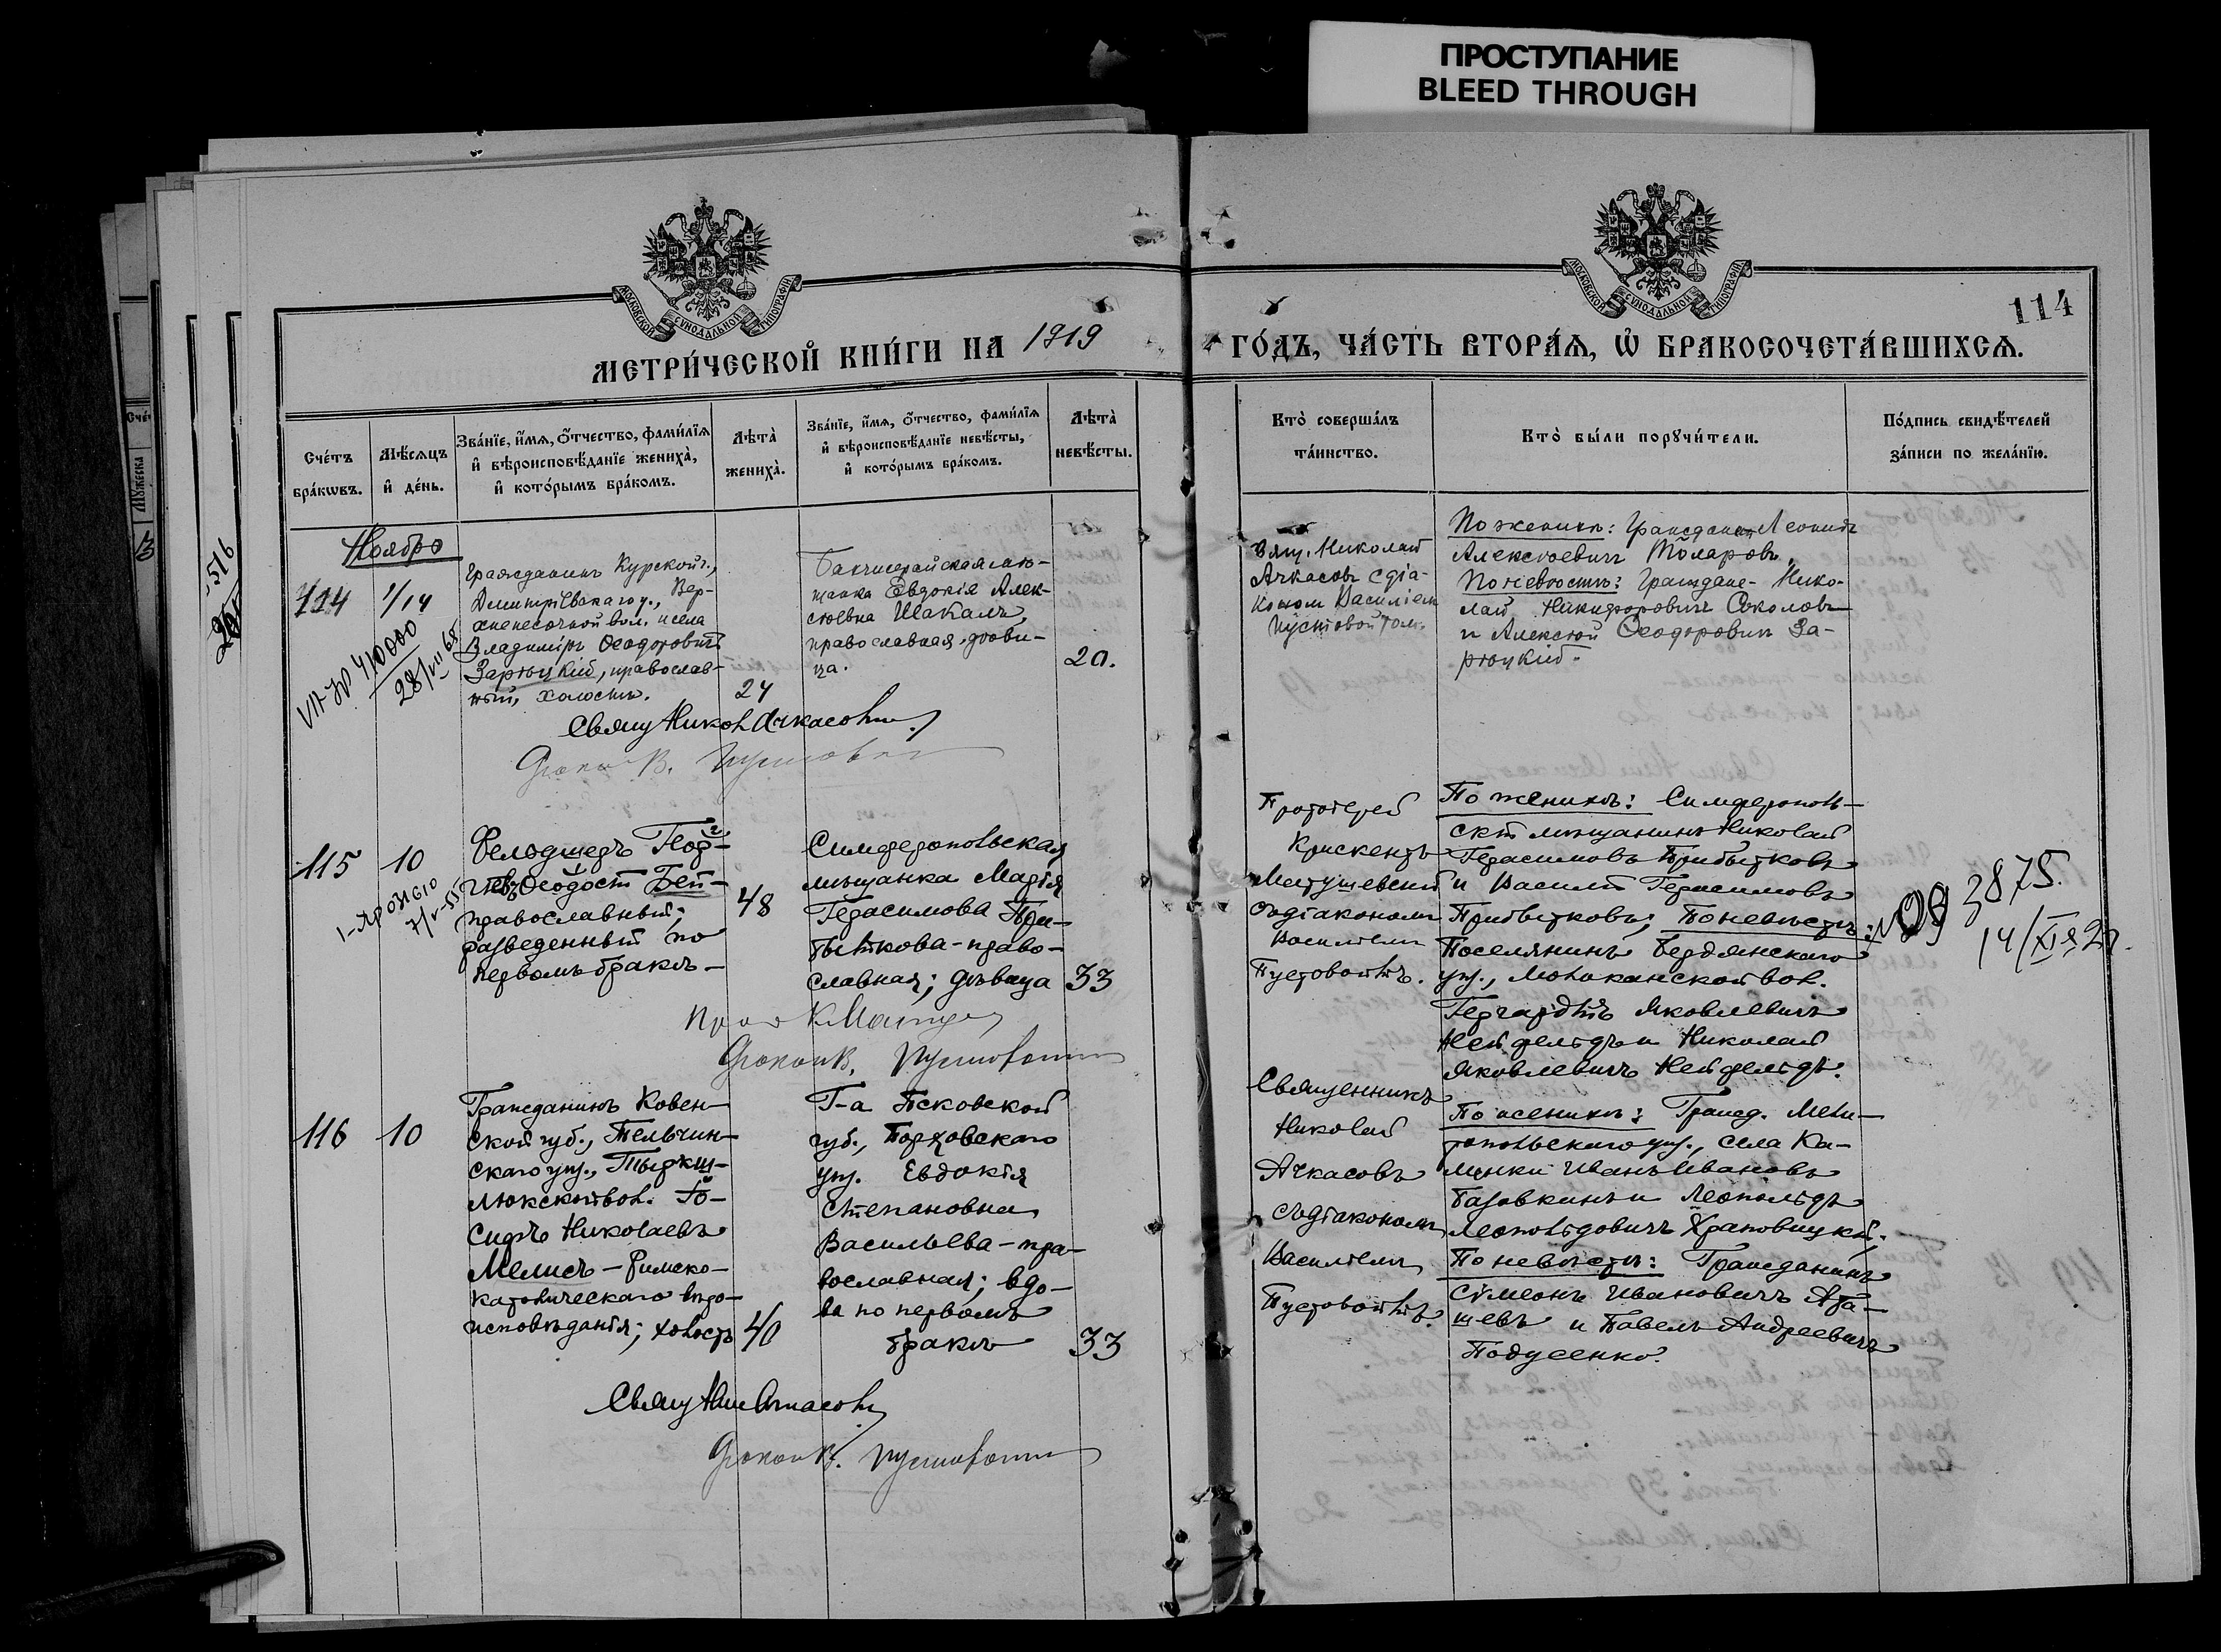 ПРОСТУПАНИЕ
BLEED THROUGH
114
МОСКОВСКОЙ СѴНОДАЛЬНОЙ ТИПОГРАФІИ
МОСКОВСКОЙ СѴНОДАЛЬНОЙ ТИПОГРАФІИ
МЕТРИ́ЧЕСКОЙ КНИ́ГИ НА 1919
ГО́ДЪ, ЧА́СТЬ ВТОРА́Я, Ѡ БРАКОСОЧЕТА́ВШИХСЯ.
Сче́тъ бра́кѡвъ.
Мѣ́сяцъ и҆ де́нь.
Зва́нїе, и҆́мя, ѻ҆́тчество, фами́лїя и҆ вѣроисповѣ́данїе жениха̀, и҆ кото́рымъ бра́комъ.
Лѣта̀ жениха̀.
Зва́нїе, и҆́мя, ѻ҆́тчество, фами́лїя и҆ вѣроисповѣ́данїе невѣ́сты, и҆ кото́рымъ бра́комъ.
Лѣта̀ невѣ́сты.
Кто̀ соверша́лъ та́инство.
Кто̀ бы́ли порꙋчи́тели.
По́дпись свидѣ́телей за́писи по жела́нїю.
516
Ноябрь
114
1/14
28/VII 65
Гражданинъ Курской г.,
Дмитріевскаго у., Вер-
хнепесочной вол. и села
Владиміръ Ѳеодоровичъ
Зарѣцкій, православ-
ный, холостъ.
24
Бахчисарайская мѣ-
щанка Евдокія Алек-
сѣевна Шакалъ,
православная, дѣви-
ца.
20.
Свящ. Николай
Ачкасовъ с діа-
кономъ Василіемъ
Пустовойтом.
По женихѣ: Гражданинъ Леонидъ
Алексѣевичъ Столяровъ.
По невѣстѣ: Граждане - Нико-
лай Никифоровичъ Соколовъ
и Алексѣй Ѳеодоровичъ За-
рѣцкій.
Свящ Никол Ачкасовъ
Діаконъ В. Пустовойт
115
10
7/V-55
Фельдшеръ Геор-
гіевъ Ѳеодосій Бей-
православный;
разведенный по
первомъ бракѣ -
48
Симферопольская
мѣщанка Марія
Герасимова При-
быткова - право-
славная; дѣвица
33
Протоіерей
Крискентъ
Матушевскій
съ діакономъ
Василіемъ
Пустовойтъ.
По женихѣ: Симферополь-
скій мѣщанинъ Николай
Герасимовъ Прибытковъ
и Василій Герасимовъ
Прибытковъ; По невѣстѣ:
Поселянинъ Бердянскаго
уѣз., Молоканской вол.
Гергардтъ Яковлевичъ
Нейфельдъ и Николай
Яковлевичъ Нейфельдъ.
3875.
14/XI
Діаконъ В. Пустовойт
116
10
Гражданинъ Ковен-
ской губ., Тельшин-
скаго уѣз., Тыркш-
люкской вол. Іо-
сифъ Николаевъ
Мелисъ - Римско-
католическаго вѣро-
исповѣданія; холостъ
40
Г-а Псковской
губ., Порховскаго
уѣз. Евдокія
Степановна
Васильева - пра-
вославная; вдо-
ва по первомъ
бракѣ
33
Священникъ
Николай
Ачкасовъ
съ діакономъ
Василіемъ
Пустовойтъ.
По женихѣ: Гражд. Мели-
топольскаго уѣз., села Ка-
линки Иванъ Ивановъ
Базовкинъ и Леопольдъ
Леопольдовичъ Храповицкій;
По невѣстѣ: Гражданинъ
Сѵмеонъ Ивановичъ Аба-
шевъ и Павелъ Андреевичъ
Подусенко.
Свящ Ник Ачкасовъ
Діаконъ В. Пустовойт